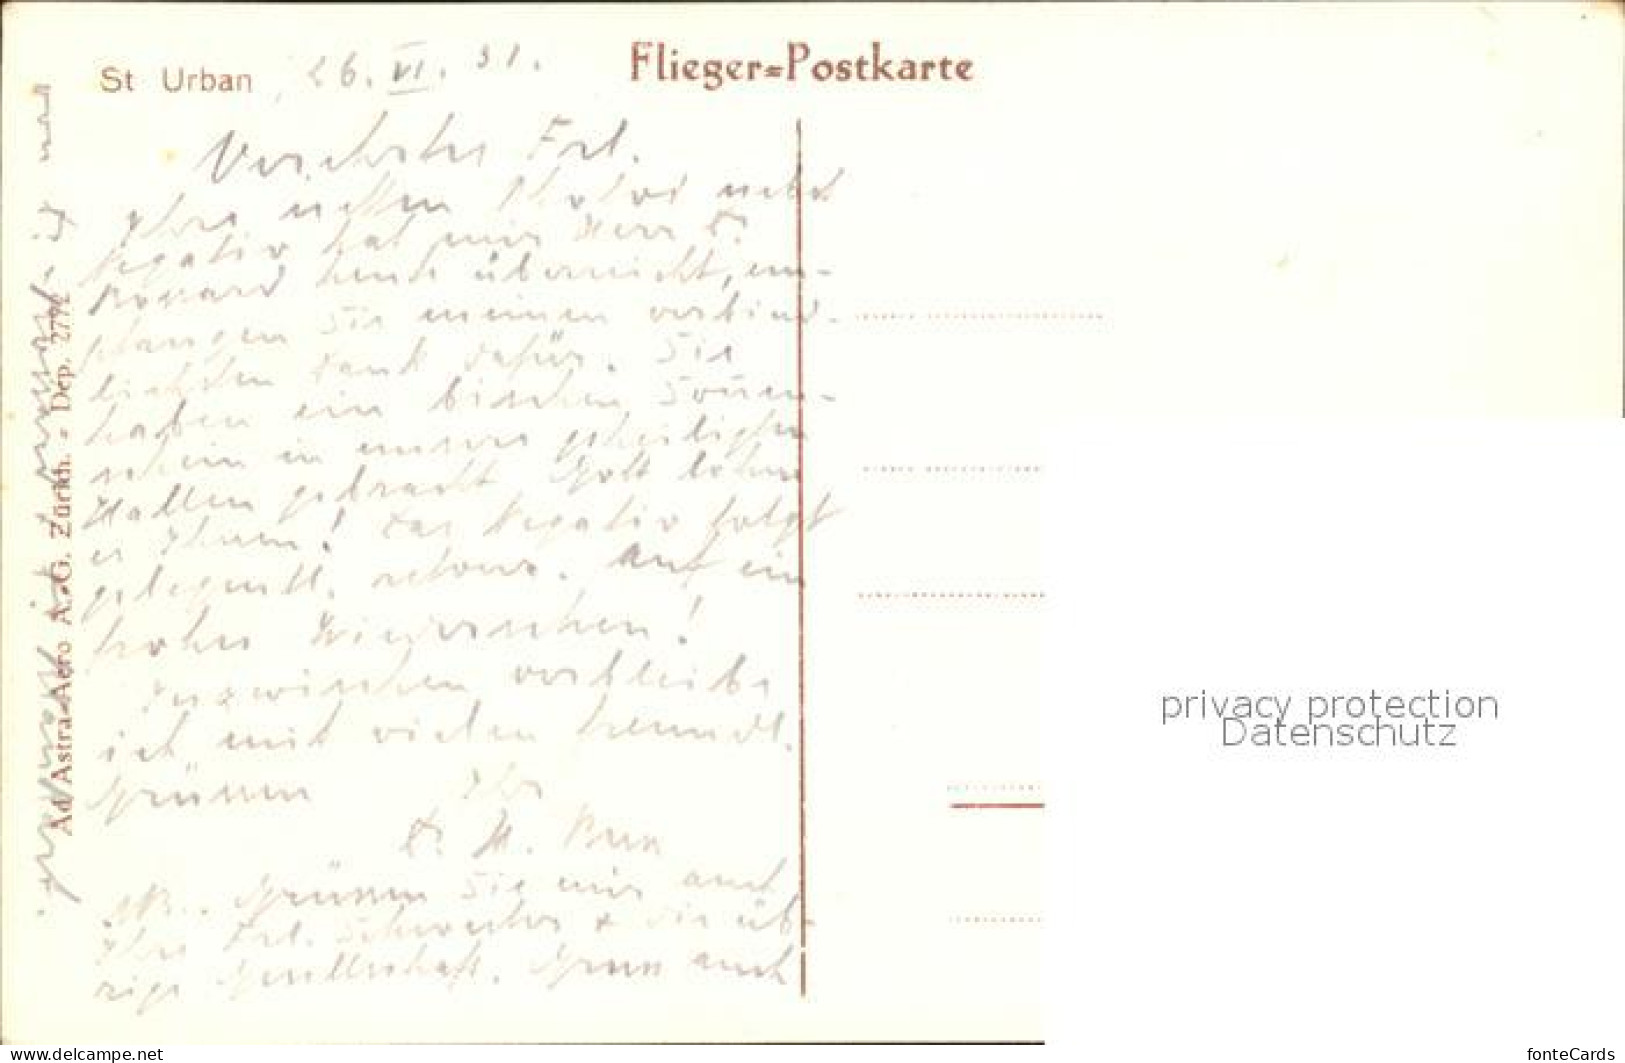 St Urban 26. VI. 31.
Flieger=Postkarte
Verehrtes Frl.
Ihre netten Photos nebst
Negativ hat mir Herr Dr.
heute überreicht, em-
pfangen Sie meinen verbind-
lichsten Dank dafür. Sie
haben ein bischen Sonnen-
schein in unsere geheiligten
Hallen gebracht Gott lohne
es Ihnen! Das Negativ folgt
gelegentl. retour. Auf ein
frohes Wiedersehen!
Inzwischen verbleibe
ich mit vielen freundl.
Grüssen Ihr
Dr. H.
NB. Grüssen Sie mir auch
Ihre Frl. Schwester + die üb-
rige Gesellschaft. Gruss auch
von
Ad Astra-Aero A.-G. Zürich. - Dep.
privacy protection
Datenschutz
www.delcampe.net
fonteCards